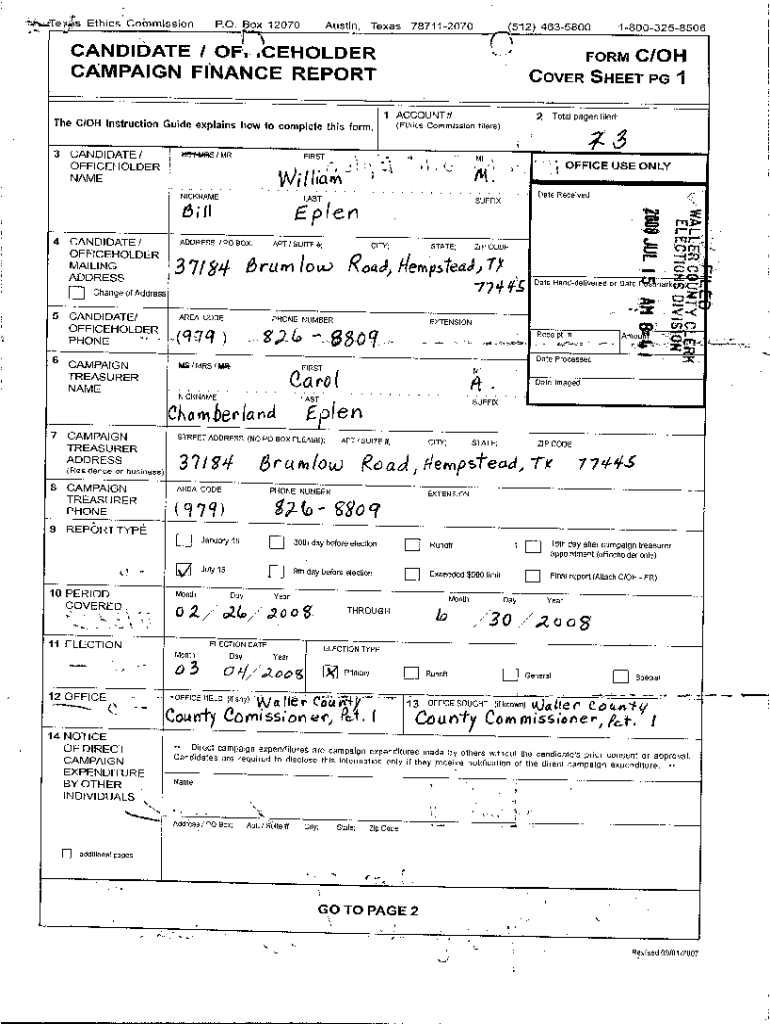 Texas Ethics Commission P.O. Box 12070 Austin, Texas 78711-2070 (512) 463-5800 1-800-325-8506
CANDIDATE / OFFICEHOLDER
CAMPAIGN FINANCE REPORT
FORM C/OH
COVER SHEET PG 1
The C/OH Instruction Guide explains how to complete this form.
1 ACCOUNT #
(Ethics Commission filers)
2 Total pages filed:
23
3 CANDIDATE /
OFFICEHOLDER
NAME
MS / MRS / MR FIRST MI
William M.
NICKNAME LAST SUFFIX
Bill Eplen
OFFICE USE ONLY
Date Received
FILED
WALLER COUNTY CLERK
ELECTIONS DIVISION
2008 JUL 15 AM 8:41
4 CANDIDATE /
OFFICEHOLDER
MAILING
ADDRESS
Change of Address
ADDRESS / PO BOX; APT / SUITE #; CITY; STATE; ZIP CODE
37184 Brumlow Road, Hempstead, TX
77445
Date Hand-delivered or Date Postmarked
5 CANDIDATE/
OFFICEHOLDER
PHONE
AREA CODE PHONE NUMBER EXTENSION
(979) 826-8809
Receipt # Amount
Date Processed
Date Imaged
6 CAMPAIGN
TREASURER
NAME
MS / MRS / MR FIRST MI
Carol A.
NICKNAME LAST SUFFIX
Chamberland Eplen
7 CAMPAIGN
TREASURER
ADDRESS
(Residence or business)
STREET ADDRESS (NO PO BOX PLEASE); APT / SUITE #; CITY; STATE; ZIP CODE
37184 Brumlow Road, Hempstead, TX 77445
8 CAMPAIGN
TREASURER
PHONE
AREA CODE PHONE NUMBER EXTENSION
(979) 826-8809
9 REPORT TYPE
January 15 30th day before election Runoff 15th day after campaign treasurer
appointment (officeholder only)
July 15 8th day before election Exceeded $500 limit Final report (Attach C/OH - FR)
10 PERIOD
COVERED
Month Day Year Month Day Year
02/26/2008 THROUGH 6/30/2008
11 ELECTION
ELECTION DATE
Month Day Year
03 04/2008
ELECTION TYPE
Primary Runoff General Special
12 OFFICE
OFFICE HELD (if any) Waller County
County Comissioner, Pct. 1
13 OFFICE SOUGHT (if known) Waller County
County Commissioner, Pct. 1
14 NOTICE
OF DIRECT
CAMPAIGN
EXPENDITURE
BY OTHER
INDIVIDUALS
additional pages
** Direct campaign expenditures are campaign expenditures made by others without the candidate's prior consent or approval.
Candidates are required to disclose this information only if they receive notification of the direct campaign expenditure. **
Name
Address / PO Box; Apt. / Suite #; City; State; Zip Code
GO TO PAGE 2
Revised 09/01/2007